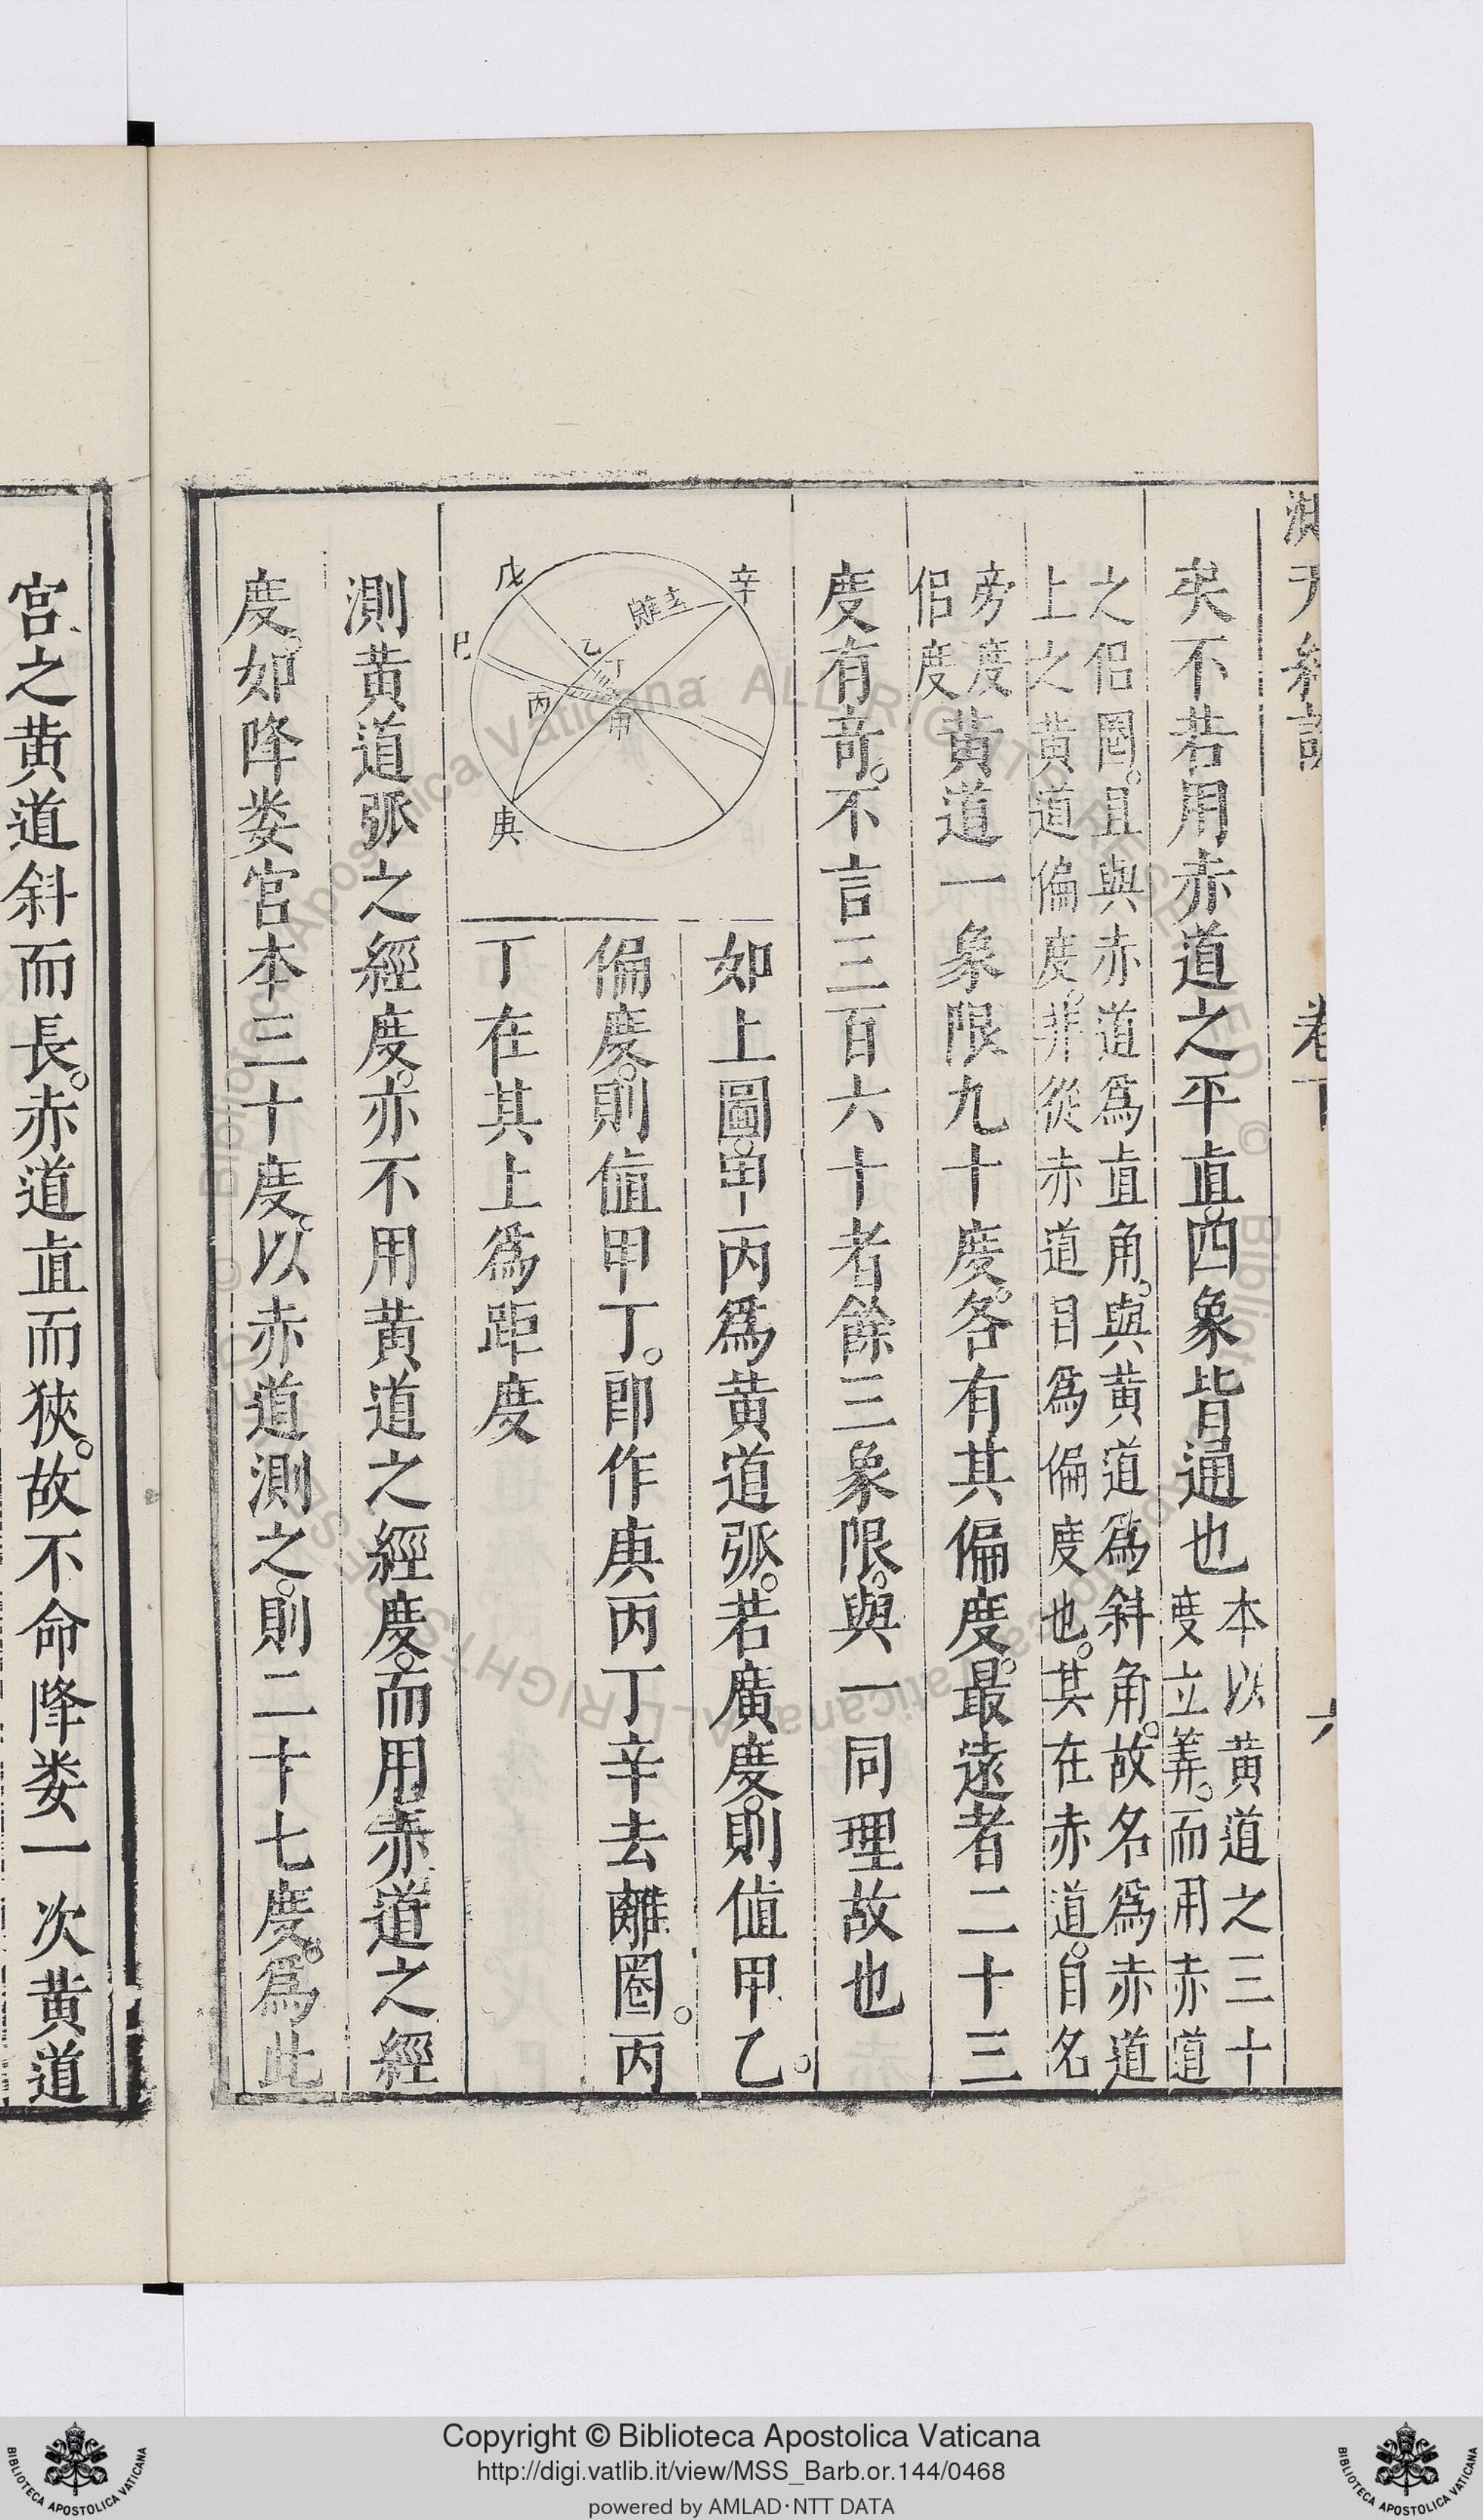 測天約說　卷下　六
矣不若用赤道之平直。四象皆通也本以黄道之三十
度立筭。而用赤道
之侣圈。且與赤道為直角。與黄道為斜角。故名為赤道
上之黄道偏度。非從赤道目為偏度也。其在赤道。自名
旁度
侣度黄道一象限九十度。各有其偏度。最遠者二十三
度有奇。不言三百六十者餘三象限。與一同理故也
辛
戊
巳
庚
甲
乙
丙
丁
離
去
如上圖。甲丙為黄道弧。若廣度。則值甲乙。
偏度。則值甲丁。即作庚丙丁辛去離圈。丙
丁在其上為距度
測黄道弧之經度。亦不用黄道之經度。而用赤道之經
度。如降婁宫本三十度。以赤道測之。則二十七度。為此
宫之黄道斜而長。赤道直而狹。故不命降婁一次黄道
Copyright © Biblioteca Apostolica Vaticana
http://digi.vatlib.it/view/MSS_Barb.or.144/0468
powered by AMLAD·NTT DATA
BIBLIOTECA APOSTOLICA VATICANA
BIBLIOTECA APOSTOLICA VATICANA